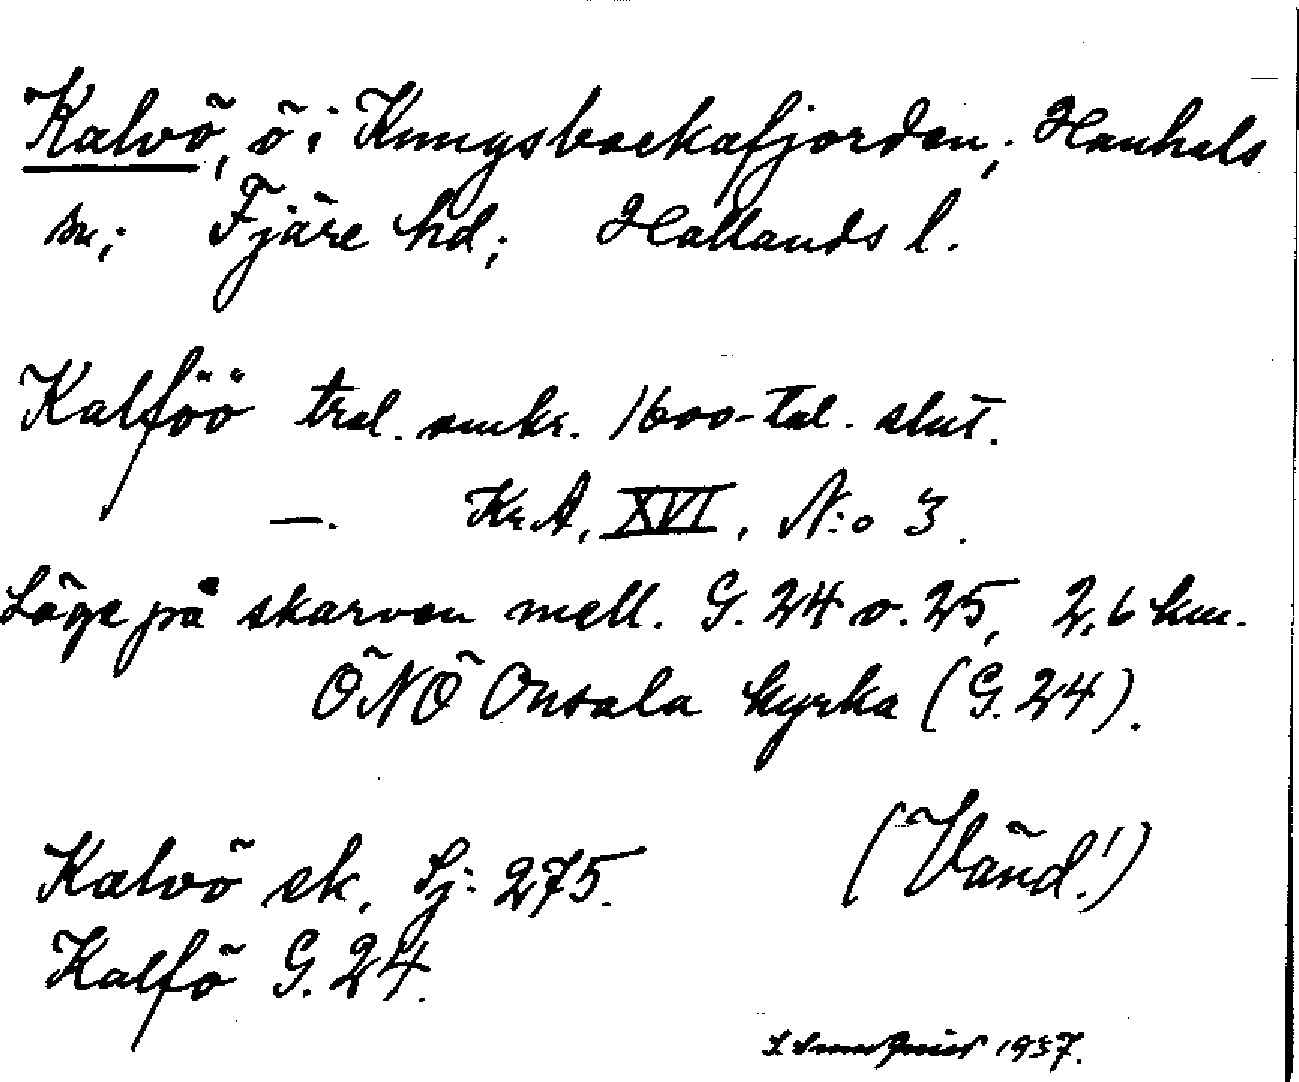 Kalvö, ö i Kungsbackafjorden; Hanhals
sn; Fjäre hd; Hallands l.
Kalföö trol. omkr. 1600-tal. slut.
—. Kr.A, XVI, N:o 3.
Läge på skarven mell. G. 24 o. 25, 2,6 km.
ÖNÖ Onsala kyrka (G. 24).
Kalvö ek. Sj: 275. (Vänd!)
Kalfö G. 24.
1937.